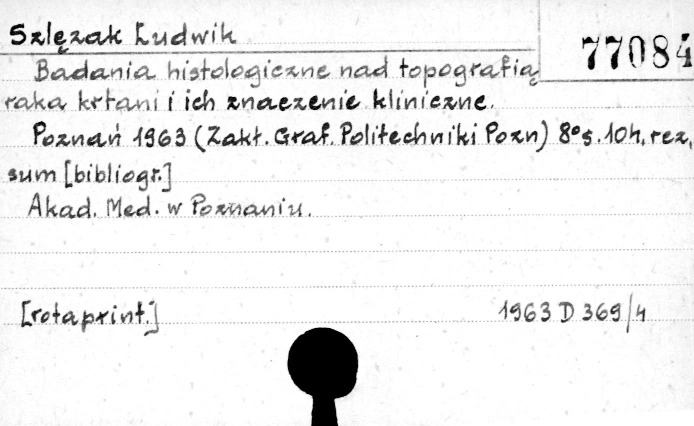 Szlęzak Ludwik
77084
Badania histologiczne nad topografią
raka krtani i ich znaczenie kliniczne.
Poznań 1963 (Zakł. Graf. Politechniki Pozn) 8° s. 104, rez,
sum [bibliogr.]
Akad. Med. w Poznaniu.
[rotaprint.]
1963 D 369/4